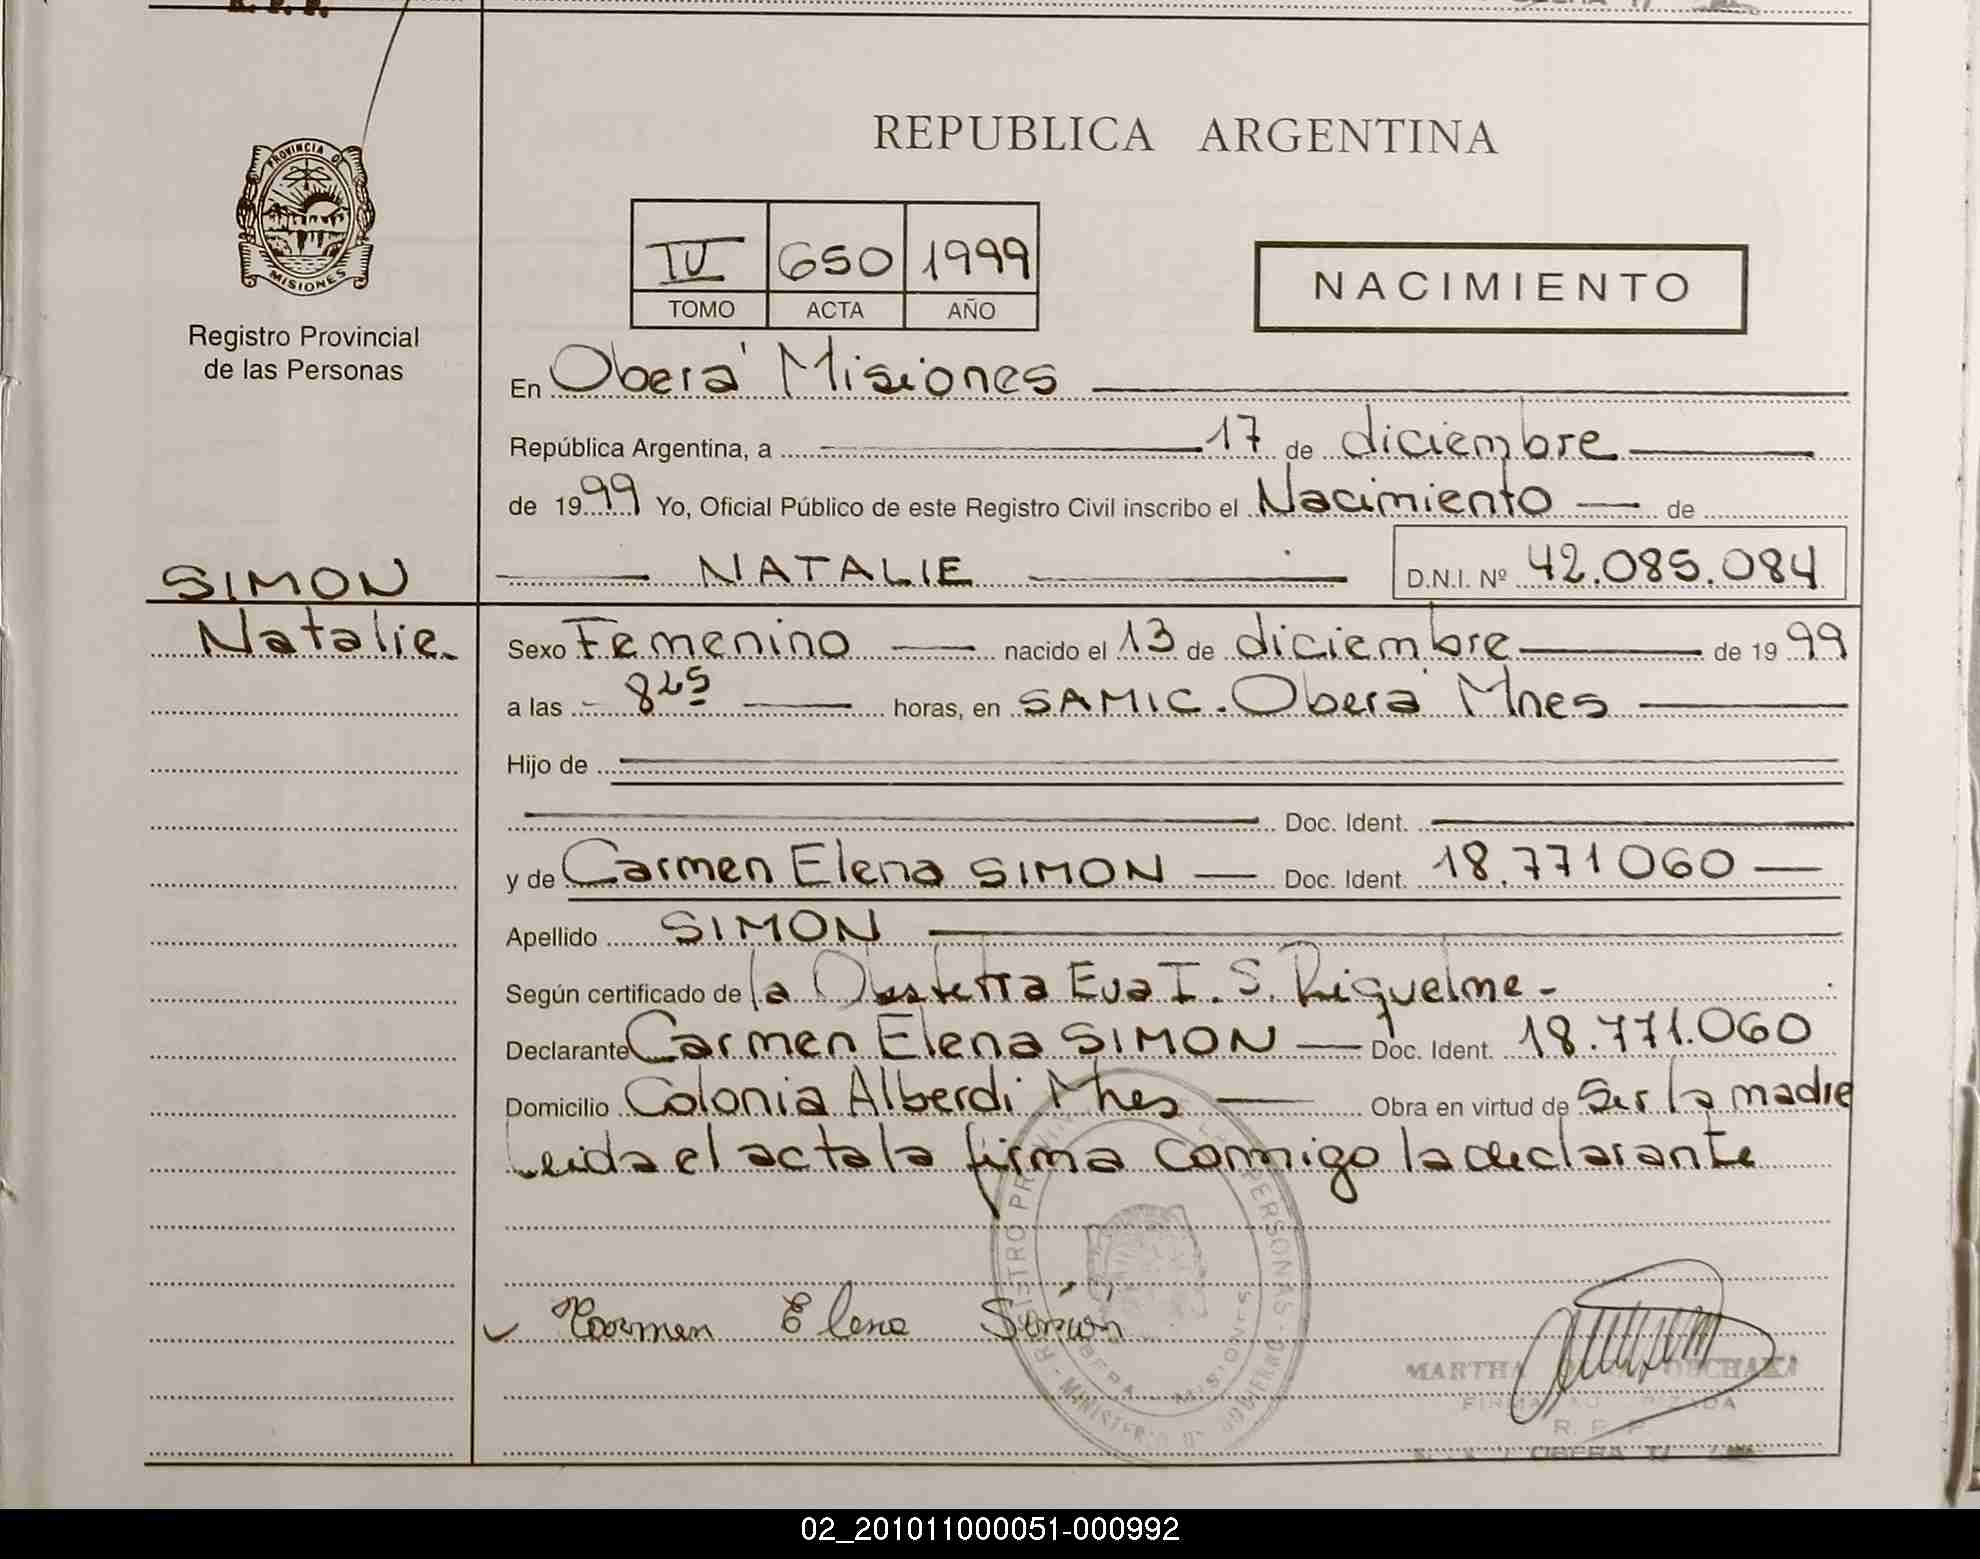 R. P. P.
PROVINCIA DE
MISIONES
Registro Provincial
de las Personas
SIMON
Natalie
REPUBLICA ARGENTINA
IV 650 1999
TOMO ACTA AÑO
NACIMIENTO
En Oberá Misiones
República Argentina, a 17 de diciembre
de 1999 Yo, Oficial Público de este Registro Civil inscribo el Nacimiento de
NATALIE D.N.I. Nº 42.085.084
Sexo Femenino nacido el 13 de diciembre de 1999
a las 8 25 horas, en SAMIC. Oberá Mnes
Hijo de
Doc. Ident.
y de Carmen Elena SIMON Doc. Ident. 18.771060
Apellido SIMON
Según certificado de la Obstetra Eva I. S. Riquelme -
Declarante Carmen Elena SIMON Doc. Ident. 18.771.060
Domicilio Colonia Alberdi Mnes Obra en virtud de Ser la madre
Leida el acta la firma conmigo la declarante
Carmen Elena Simón
REGISTRO PERSONAS - MINISTERIO GOBIERNO
OBERA MISIONES
MARTHA
R. P. P.
OBERA
02_201011000051-000992